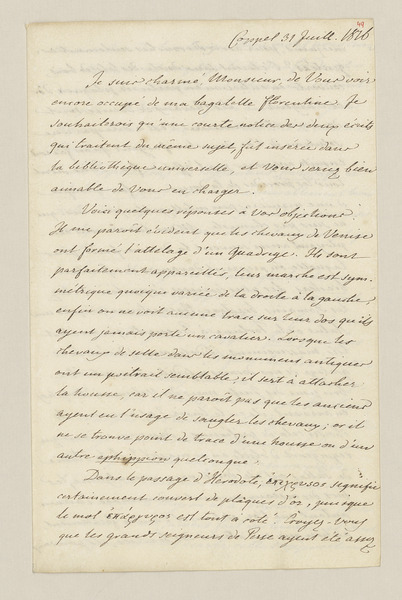 49
Coppet 31 Juill. 1816
Je suis charmé Monsieur, de Vous voir
encore occupé de ma bagatelle florentine. Je
souhaiterois qu'une courte notice des deux écrits
qui traitent du même sujet, fût insérée dans
la bibliothèque universelle, et Vous serez bien
aimable de Vous en charger.
Voici quelques réponses à vos objections.
Il me paroît évident que les chevaux de Venise
ont formé l'attelage d'un Quadrige. Ils sont
parfaitement appareillés, leur marche est sym-
métrique quoique variée de la droite à la gauche;
enfin on ne voit aucune trace sur leur dos qu'ils
ayent jamais porté un cavalier. Lorsque les
chevaux de selle dans les monumens antiques
ont un poitrail semblable, il sert à attacher
la housse, car il ne paroît pas que les anciens
ayent eu l'usage de sangler les chevaux; or il
ne se trouve point de trace d'une housse ou d'un
autre ephippion quelconque.
Dans le passage d'Hérodote, ἐπίχρυσος signifie
certainement couvert de plaques d'or, puisque
le mot ἐπάργυρος est tout à coté. Croyez-vous
que les grands seigneurs de Perse ayent été assez